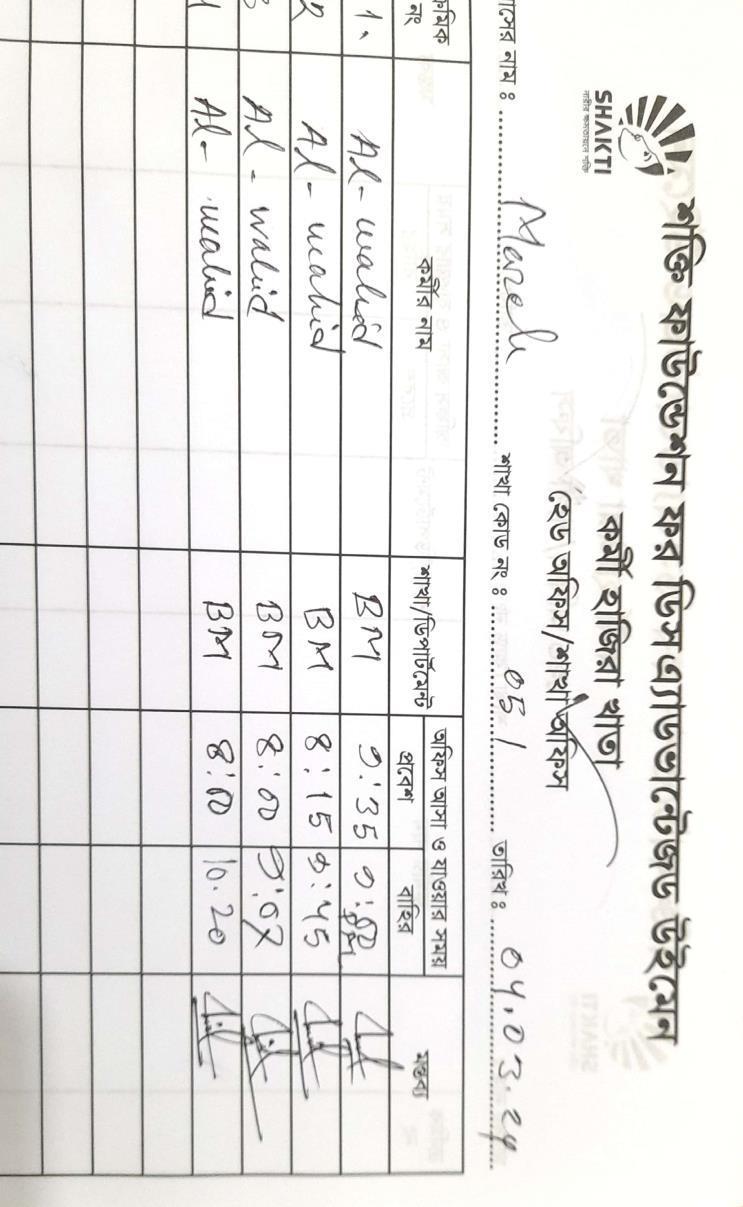 SHAKTI
নারীর ক্ষমতায়নে শক্তি
শক্তি ফাউন্ডেশন ফর ডিসএ্যাডভান্টেজড উইমেন
কর্মী হাজিরা খাতা
হেড অফিস/শাখা অফিস
মাসের নাম : March শাখা কোড নং : 051 তারিখ : 04.03.24
ক্রমিক নং কর্মীর নাম শাখা/ডিপার্টমেন্ট অফিস আসা ও যাওয়ার সময় মন্তব্য
প্রবেশ বাহির
1. Al-wahid BM 9:35
2 Al-wahid BM 8:15 9:45
3 Al-wahid BM 8:00 9:07
Al-wahid BM 8:00 10.20